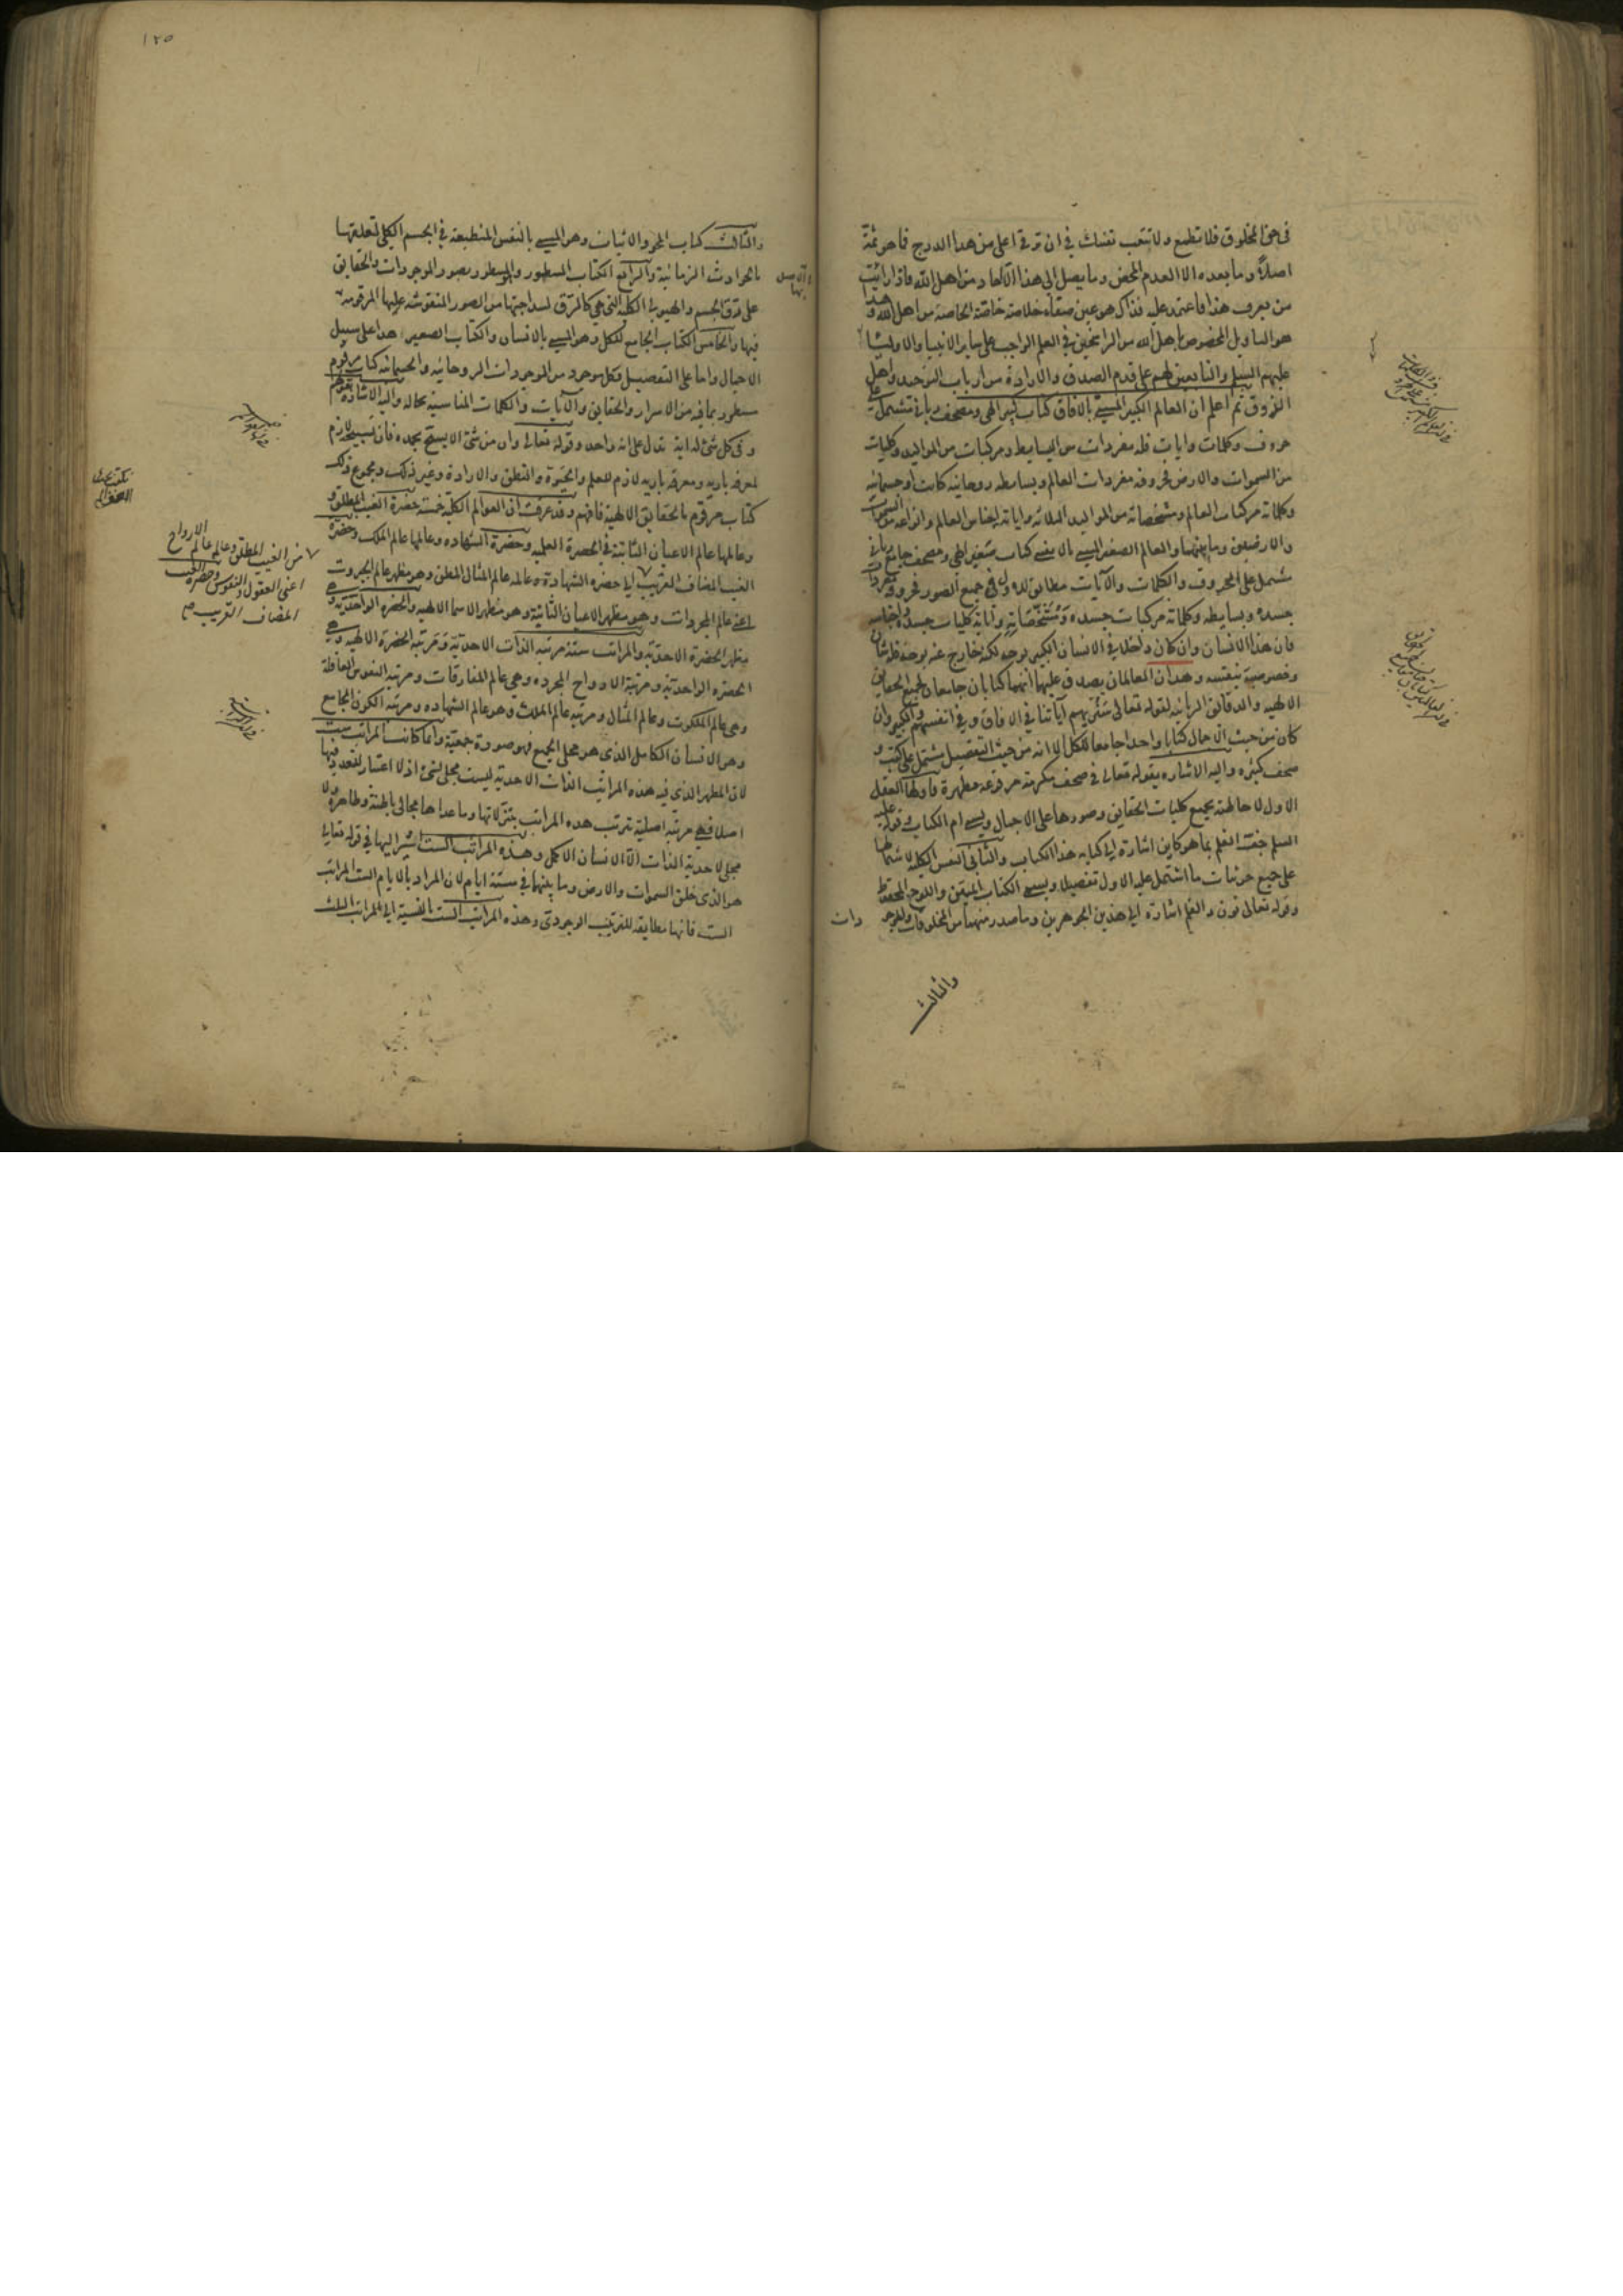 في حق المخلوق فلا تطمع ولا تتعب نفسك في ان ترقى اعلى من هذا الدرج فما هو ثمة
اصلاً وما بعده الا العدم المحض وما يصل الى هذا الا آحاد من اهل الله فاذا رأيت
من يعرف هذا فاعتمد عليه فذاك هو عين صفاء خلاصة خاصة الخاصة من اهل الله وهذا
هو التاويل المخصوص باهل الله من الراسخين في العلم الواجب على ساير الانبياء والاولياء
عليهم السلم والتابعين لهم على قدم الصدق والارادة من ارباب التوحيد واهل
الذوق ثم اعلم ان العالم الكبير المسمى بالافاق كتاب كبير الهي ومصحف رباني تشتمل على
حروف وكلمات وايات فله مفردات من البسايط ومركبات من المواليد وكليات
من السموات والارض فحروفه مفردات العالم وبسايطه روحانيه كانت او جسمانيه
وكلماته مركبات العالم ومشخصاته من المواليد الثلاثه واياته اجناس العالم وانواعه من السموات
والارضين وما بينهما والعالم الصغير المسمى بالانفس كتاب صغير الهي ومصحف جامع رباني
مشتمل على الحروف والكلمات والآيات مطابق للاول في جميع الصور فحروفه مفردات
جسده وبسايطه وكلماته مركبات جسده ومشخصاته واياته كليات جسده واجناسه
فان هذا الانسان وان كان داخلا في الانسان الكبير بوجه لكنه خارج عنه بوجه فله شان
وخصوصية بنفسه وهذان العالمان يصدق عليهما انهما كتابان جامعان لجميع الحقايق
الالهيه والدقائق الربانيه لقوله تعالى سنريهم آياتنا في الافاق وفي انفسهم والكبير وان
كان من حيث الاجمال كتابا واحدا جامعا للكل الا انه من حيث التفصيل مشتمل على كتب و
صحف كثيره واليه الاشاره بقوله تعالى في صحف مكرمة مرفوعة مطهرة فاولها العقل
الاول لاحاطته بجميع كليات الحقايق وصورها على الاجمال ويسمى ام الكتاب وقوله عليه
السلم جف القلم بما هو كاين اشارة الى كتابه هذا الكتاب والثاني النفس الكلية لاشتمالها
على جميع جزئيات ما اشتمل عليه الاول تفصيلا ويسمى الكتاب المبين واللوح المحفوظ
وقوله تعالى نون والقلم اشارة الى هذين الجوهرين وما صدر منهما من المخلوقات والموجو
دات
والثالث
١٢٥
والثالث كتاب المحو والاثبات وهو المسمى بالنفس المنطبعة في الجسم الكلي لتعلقها
بالحوادث الزمانية والرابع الكتاب المسطور والمسطور بصور الموجودات والحقايق
على رق الجسم والهيولى الكلية التي هي كالرق لسذاجتها من الصور المنقوشة عليها المرقومة
فيها والخامس الكتاب الجامع للكل وهو المسمى بالانسان والكتاب الصغير هذا على سبيل
الاجمال واما على التفصيل فكل موجود من الموجودات الروحانيه والجسمانيه كتاب مرقوم
مسطور بما فيه من الاسرار والحقايق والآيات والكلمات المناسبة بحاله واليه الاشارة بقولهم
وفي كل شئ له اية تدل على انه واحد وقوله تعالى وان من شئ الا يسبح بحمده فان تسبيحه لازم
لمعرفة باريه ومعرفة باريه لازم للعلم والحيوة والنطق والارادة وغير ذلك ومجموع ذلك
كتاب مرقوم بالحقايق الالهية فافهم وقد عرفت ان العوالم الكلية خمسة حضرة الغيب المطلق و
وعالمها عالم الاعيان الثابتة في الحضرة العلمية وحضرة الشهاده وعالمها عالم الملك وحضرة
الغيب المضاف القريب الى حضرة الشهادة وعالمه عالم المثال المطلق وهو مظهر عالم الجبروت
اعني عالم المجردات وهو مظهر الاعيان الثابتة وهو مظهر الاسما الالهيه والحضرة الواحديه وهي
مظهر الحضرة الاحدية والمراتب ستة مرتبة الذات الاحدية ومرتبة الحضرة الالهيه وهي
الحضرة الواحدية ومرتبة الارواح المجرده وهي عالم المفارقات ومرتبة النفوس العاملة
وهي عالم الملكوت وعالم المثال ومرتبة عالم الملك وهو عالم الشهاده ومرتبة الكون الجامع
وهو الانسان الكامل الذى هو مجلى الجميع فهو صورة جمعية وانما كانت المراتب ست
لان المظهر الذي فيه هذه المراتب الذات الاحدية ليست مجلى لشئ اذ لا اعتبار للتعدد فيها
اصلا فهي مرتبة اصلية تترتب هذه المراتب بتنزلاتها وما عداها مجالي باطنة وظاهرة ولا
مجلى لاحدية الذات الا الانسان الاكمل وهذه المراتب الست اشير اليها في قوله تعالى
هو الذي خلق السموات والارض وما بينهما في ستة ايام لان المراد بالايام الست المراتب
الست فانها مطابقة للترتيب الوجودي وهذه المراتب الست بالنسبة الى المراتب الثلث
من الغيب المطلق وعالمها عالم الارواح
اعني العقول والنفوس وحضرة الغيب
المضاف القريب صح